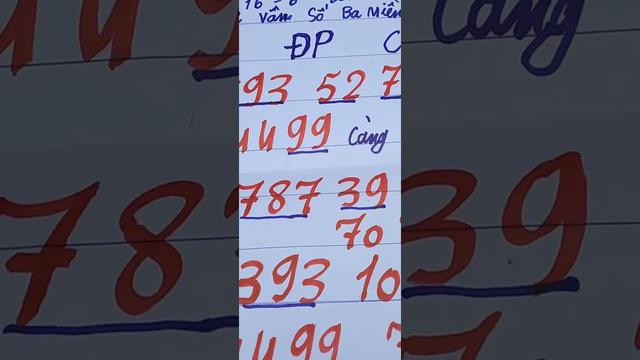 Vấn Số Ba Miền
ĐP C
93 52 7
99 Càng
787 39
70
393 10
99